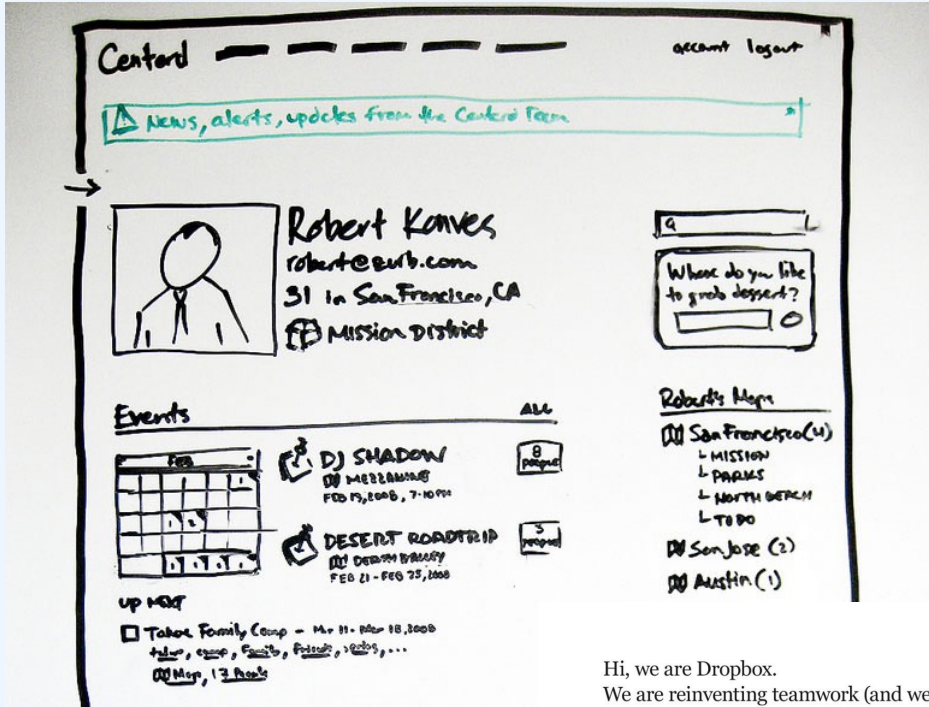 Centerd
account logout
News, alerts, updates from the Centerd Team
Robert Konves
robert@zurb.com
31 in San Francisco, CA
Mission District
Where do you like
to grab dessert?
Events
ALL
FEB
DJ SHADOW
MEZZANINE
FEB 19, 2008, 7-10PM
8
people
DESERT ROADTRIP
DEATH VALLEY
FEB 21 - FEB 25, 2008
3
people
UP NEXT
Tahoe Family Camp - Mar 11 - Mar 18, 2008
camp, Family, Friends,
Map, 17 People
Robert's Maps
San Francisco (4)
MISSION
PARKS
NORTH BEACH
TO DO
San Jose (2)
Austin (1)
Hi, we are Dropbox.
We are reinventing teamwork (and we